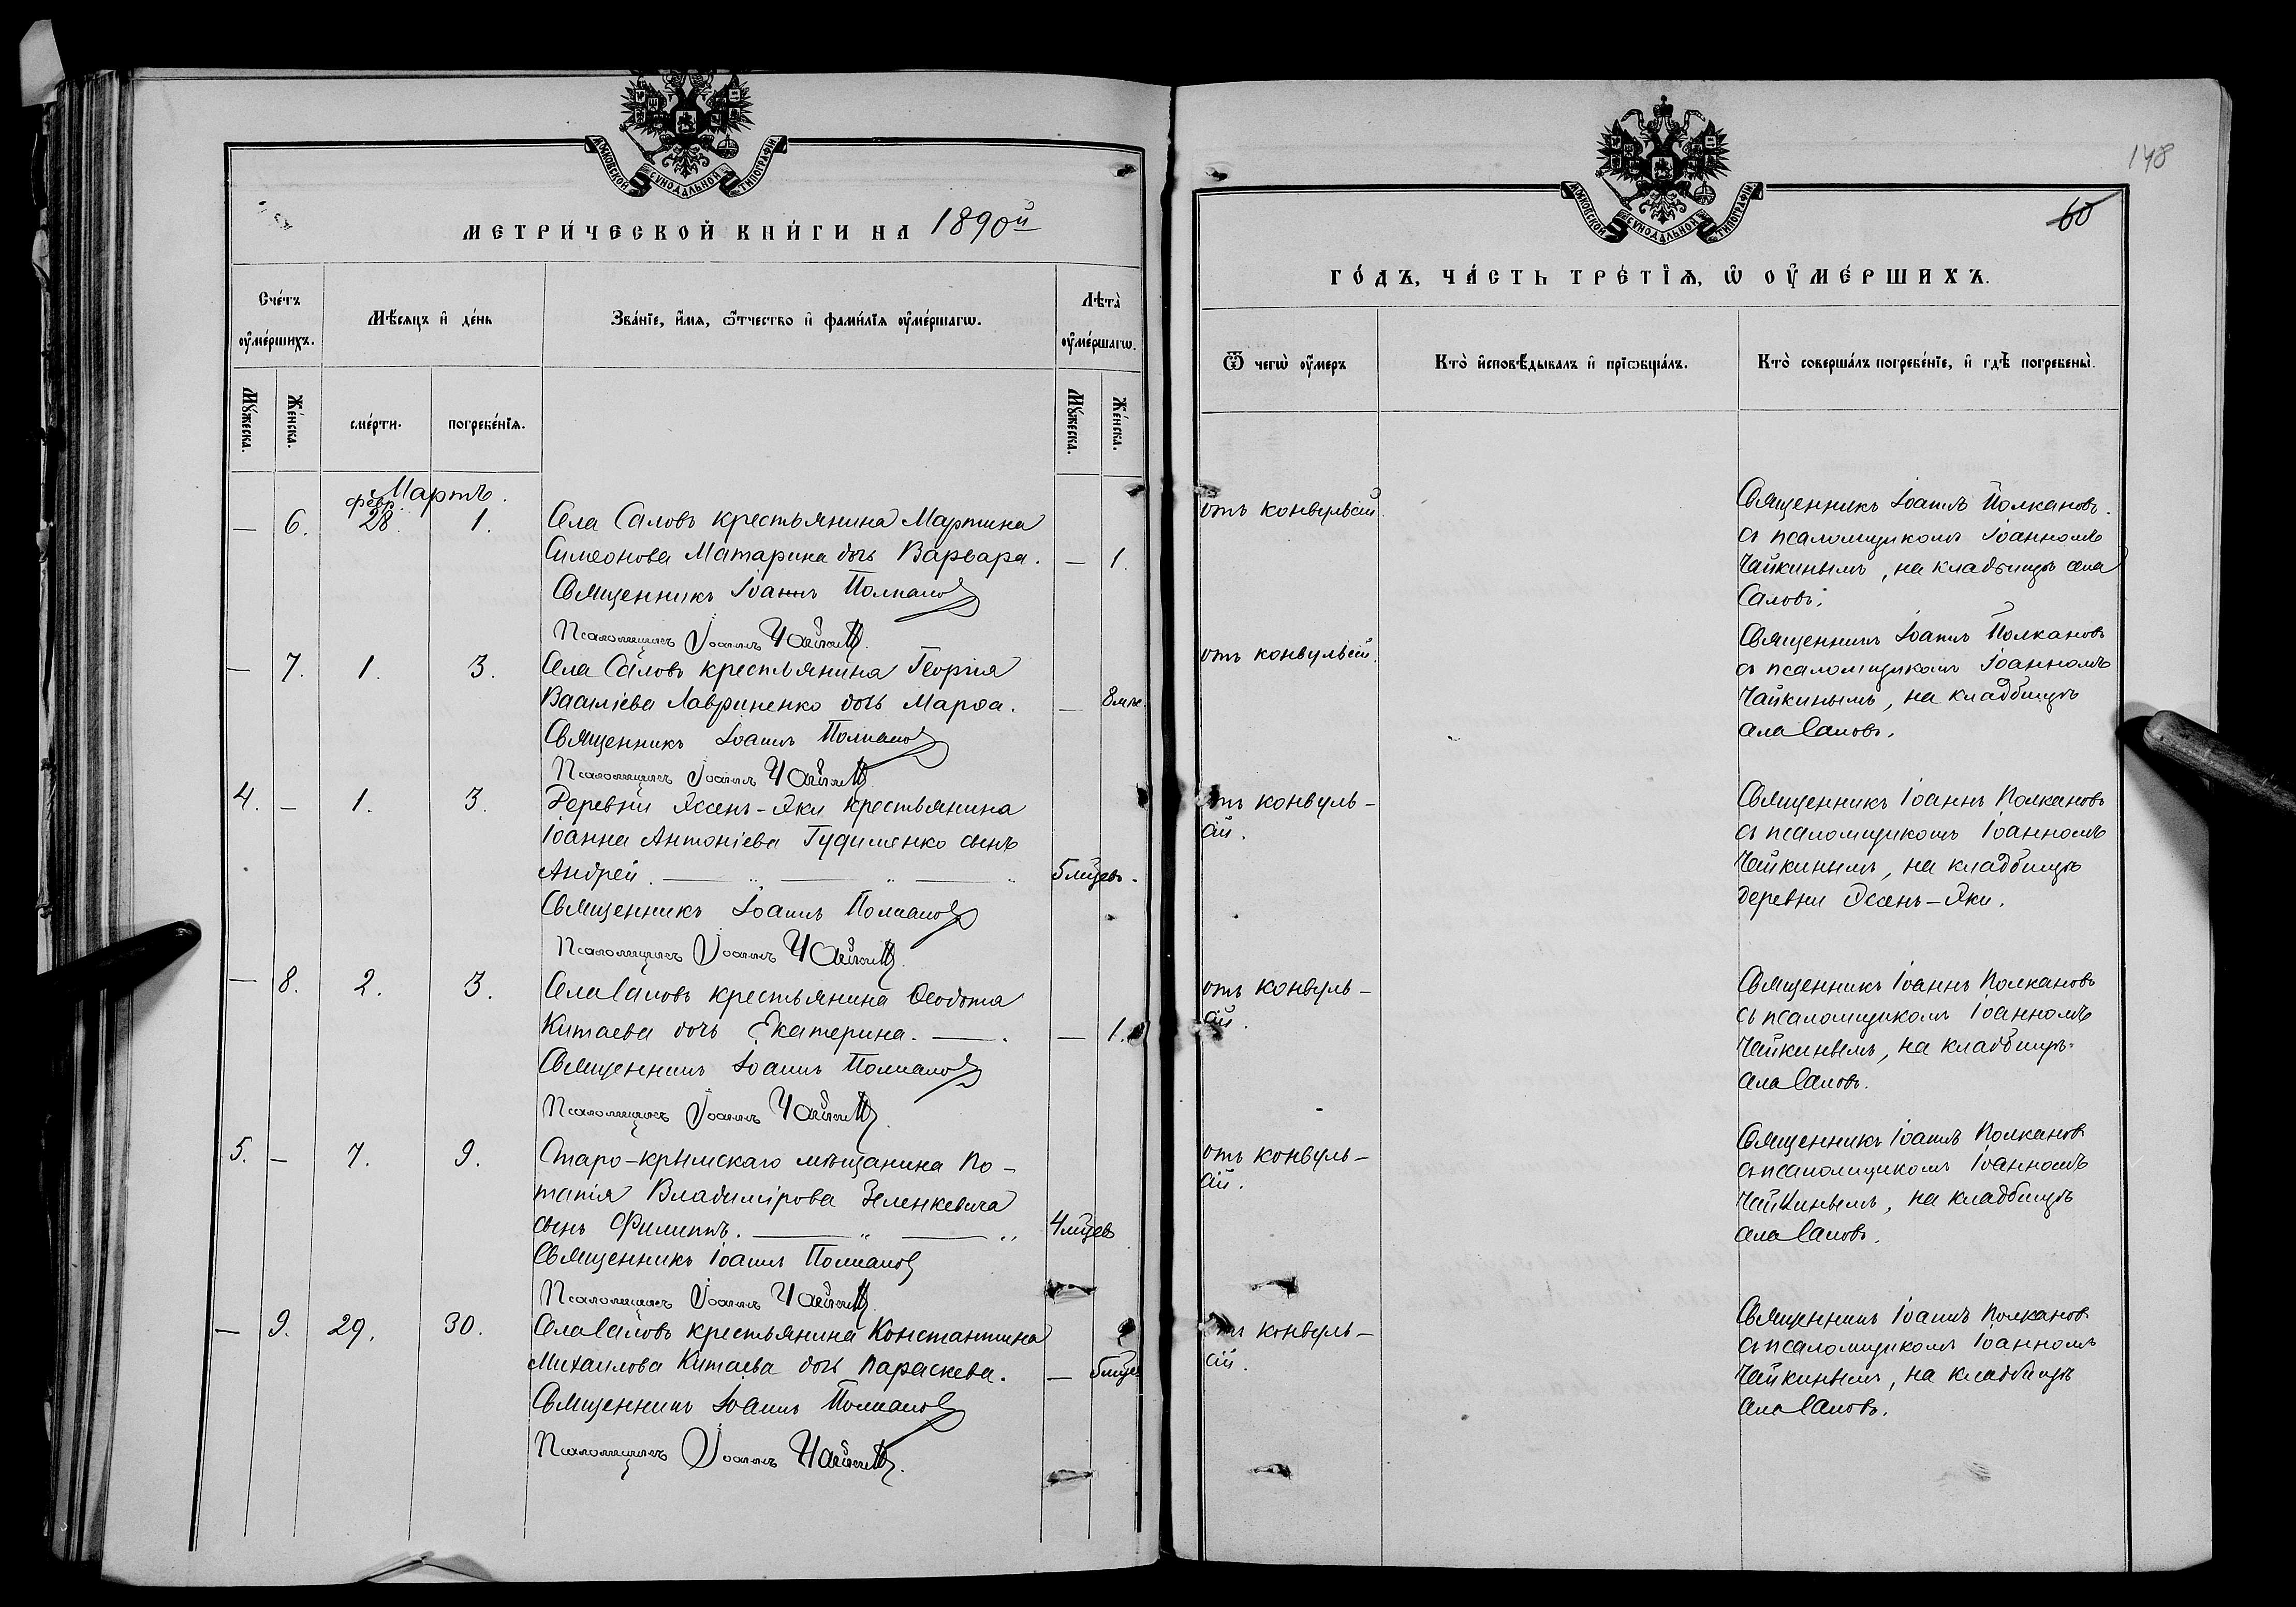 МОСКОВСКОЙ СѴНОДАЛЬНОЙ ТИПОГРАФІИ
МЕТРИ́ЧЕСКОЙ КНИ́ГИ НА 1890й
Сче́тъ оу҆ме́ршихъ.
Мѣ́сѧцъ и҆ де́нь
Зва́нїе, и҆́мѧ, ѻ҆́тчество и҆ фами́лїѧ оу҆ме́ршагѡ.
Лѣта̀ оу҆ме́ршагѡ.
Мꙋ́жеска.
Же́нска.
сме́рти.
погребе́нїѧ.
Мꙋ́жеска.
Же́нска.
Мартъ.
февр.
— 6. 28. 1. Села Саловъ крестьянина Мартина
Симеонова Матарина дочь Варвара. — 1.
Священникъ Іоаннъ Полканов
Псаломщикъ Іоаннъ Чайкин
— 7. 1. 3. Села Саловъ крестьянина Георгія
Василіева Лавриненко дочь Марѳа. — 8 мсц.
Священникъ Іоаннъ Полканов
Псаломщикъ Іоаннъ Чайкин
4. — 1. 3. Деревни Ясенъ-Яки крестьянина
Іоанна Антоніева Гудименко сынъ
Андрей. — „ — „ — „ 5 мцевъ.
Священникъ Іоаннъ Полканов
Псаломщикъ Іоаннъ Чайкин
— 8. 2. 3. Села Саловъ крестьянина Ѳеодота
Китаева дочь Екатерина. — . — 1.
Священникъ Іоаннъ Полканов
Псаломщикъ Іоаннъ Чайкин
5. — 7. 9. Старо-крымскаго мѣщанина По-
тапія Владимірова Зеленкевича
сынъ Филиппъ. — „ — „ 4 мцев
Священникъ Іоаннъ Полканов
Псаломщикъ Іоаннъ Чайкин
— 9. 29. 30. Села Саловъ крестьянина Константина
Михаилова Китаева дочь Параскева. — 5 мцев
Священникъ Іоаннъ Полканов
Псаломщикъ Іоаннъ Чайкин
148
60
МОСКОВСКОЙ СѴНОДАЛЬНОЙ ТИПОГРАФІИ
ГО́ДЪ, ЧА́СТЬ ТРЕ́ТЇѦ, Ѡ҆ ОУ҆МЕ́РШИХЪ.
Ѿ чегѡ̀ оу҆́меръ
Кто̀ и҆сповѣ́дывалъ и҆ прїѡбща́лъ.
Кто̀ соверша́лъ погребе́нїе, и҆ гдѣ̀ погребены̀.
отъ конвульсій.
Священникъ Іоаннъ Полкановъ
съ псаломщикомъ Іоанномъ
Чайкинымъ, на кладбищѣ села
Саловъ.
отъ конвульсій.
Священникъ Іоаннъ Полкановъ
съ псаломщикомъ Іоанномъ
Чайкинымъ, на кладбищѣ
села Саловъ.
отъ конвуль-
сій.
Священникъ Іоаннъ Полкановъ
съ псаломщикомъ Іоанномъ
Чайкинымъ, на кладбищѣ
деревни Ясенъ-Яки.
отъ конвуль-
сій.
Священникъ Іоаннъ Полкановъ
съ псаломщикомъ Іоанномъ
Чайкинымъ, на кладбищѣ
села Саловъ.
отъ конвуль-
сій.
Священникъ Іоаннъ Полканов
съ псаломщикомъ Іоанномъ
Чайкинымъ, на кладбищѣ
села Саловъ.
отъ конвуль-
сій.
Священникъ Іоаннъ Полканов
съ псаломщикомъ Іоанномъ
Чайкинымъ, на кладбищѣ
села Саловъ.